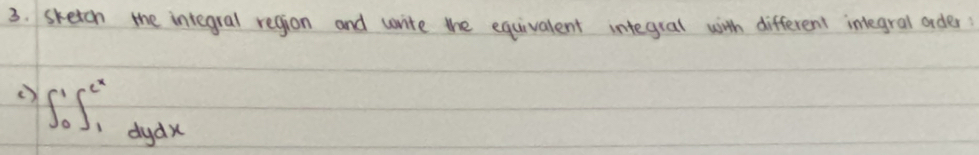 3. sketch the integral region and write the equivalent integral with different integral order:
c) ∫₀¹ ∫₁^(e^x) dydx